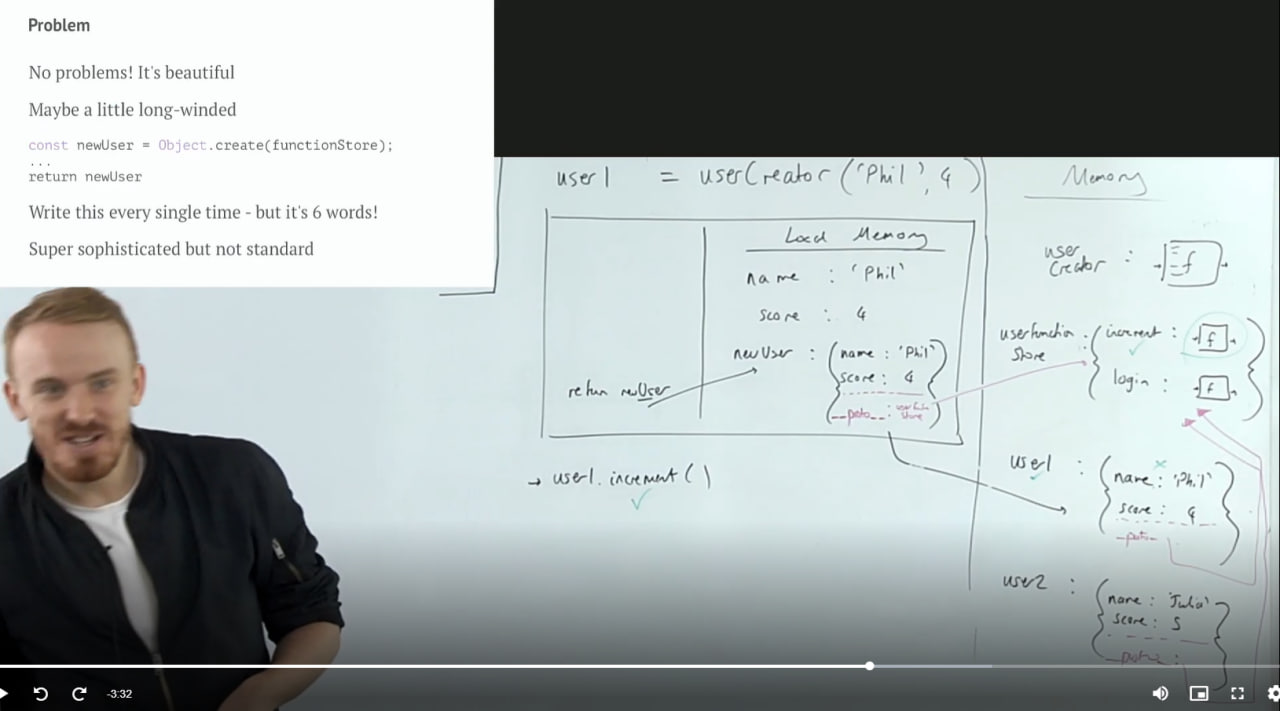 Problem
No problems! It's beautiful
Maybe a little long-winded
const newUser = Object.create(functionStore);
...
return newUser
Write this every single time - but it's 6 words!
Super sophisticated but not standard
user1 = userCreator('Phil', 4)
Local Memory
name : 'Phil'
score : 4
newUser : {name : 'Phil'
score : 4
--proto-- : userfunction store}
return newUser
→ user1.increment()
Memory
user Creator : f
userfunction store : {increment : f
login : f}
user1 : {name : 'Phil'
score : 4
--proto--}
user2 : {name : 'Julia'
score : 5
--proto-- :}
-3:32